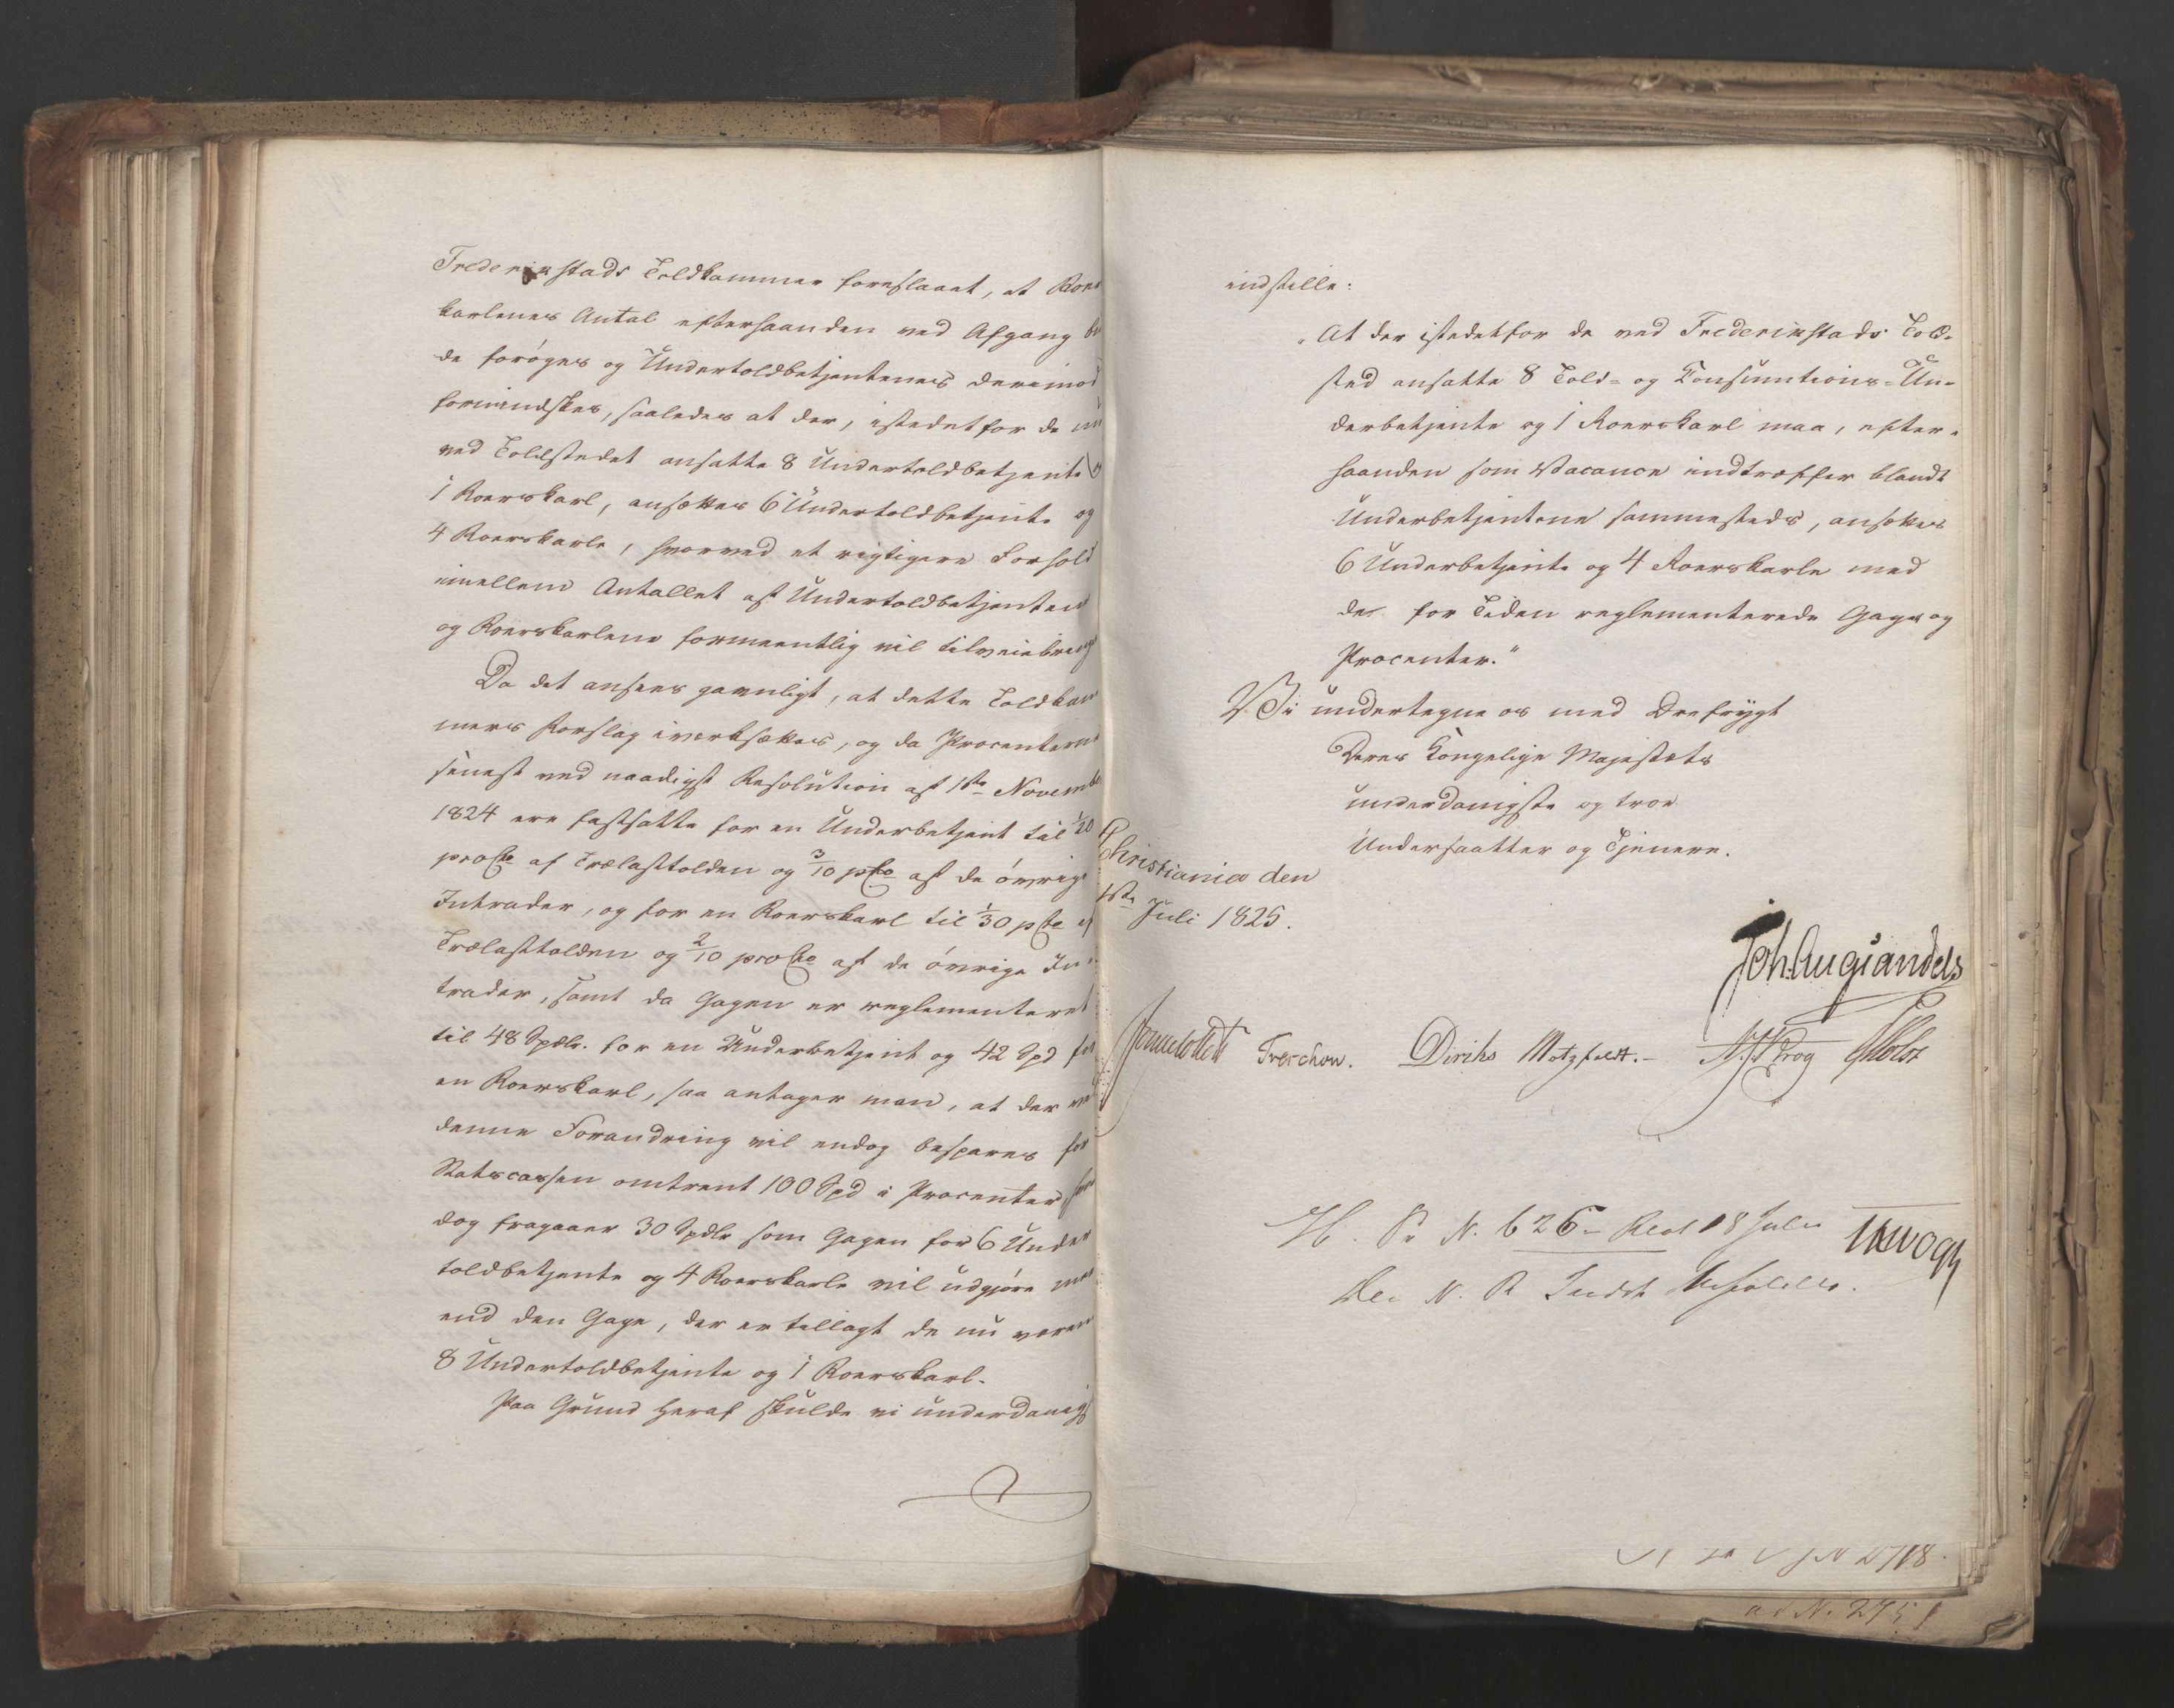 Frederikstads Toldkammer foreslaaet, at Roers
karlenes Antal efterhaanden ved Afgang bur
de forøges og Undertoldbetjentenes derimod
formindskes, saaledes at der, istedetfor de nu
ved Toldstedet ansatte 8 Undertoldbetjente og
1 Roerskarl, ansættes 6 Undertoldbetjente og
4 Roerskarle, hvorved et rigtigere Forhold
imellem Antallet af Undertoldbetjentene
og Roerskarlene formeentlig vil tilveiebringes
Da det ansees gavnligt, at dette Toldkam
mers Forslag iverksættes, og da Procenterne
senest ved naadigst Resolution af 1ste November
1824 ere fastsatte for en Underbetjent til 1/20
procto af Trælasttolden og 3/10 pcto af de øvrige
Intrader, og for en Roerskarl til 1/30 pcto af
Trælasttolden og 2/10 procto af de øvrige In-
trader, samt da Gagen er reglementeret
til 48 Spdlr. for en Underbetjent og 42 Spd for
en Roerskarl, saa antager man, at der ved
denne Forandring vil endog bespares for
Statscassen omtrent 100 Spd i Procenter, hvor
dog fragaaer 30 Spdlr som Gagen for 6 Under
toldbetjente og 4 Roerskarle vil udgjøre meer
end den Gage, der er tillagt de nu værende
8 Undertoldbetjente og 1 Roerskarl.
Paa Grund heraf skulde vi underdanigst
indstille:
"At der istedetfor de ved Frederikstads Told-
sted ansatte 8 Told- og Consumtions-Un-
derbetjente og 1 Roerskarl maa, efter-
haanden som Vacance indtræffer blandt
Underbetjentene sammesteds, ansættes
6 Underbetjente og 4 Roerskarle med
de for Tiden reglementerede Gager og
Procenter."
Vi undertegne os med Drefrygt
Deres Kongelige Majestæts
underdanigste og troe
Undersaatter og Tjenere.
Christiania den
1ste Juli 1825.
Joh. Aug. Sandels
Sommerfeldt Treschow. Diriks Motzfeldt. - Krog Holst
H. Pr N. 626 - Resl 18 Juli
Vogt
Den N. R Indst bifaldes.
2718.
ad N. 2751